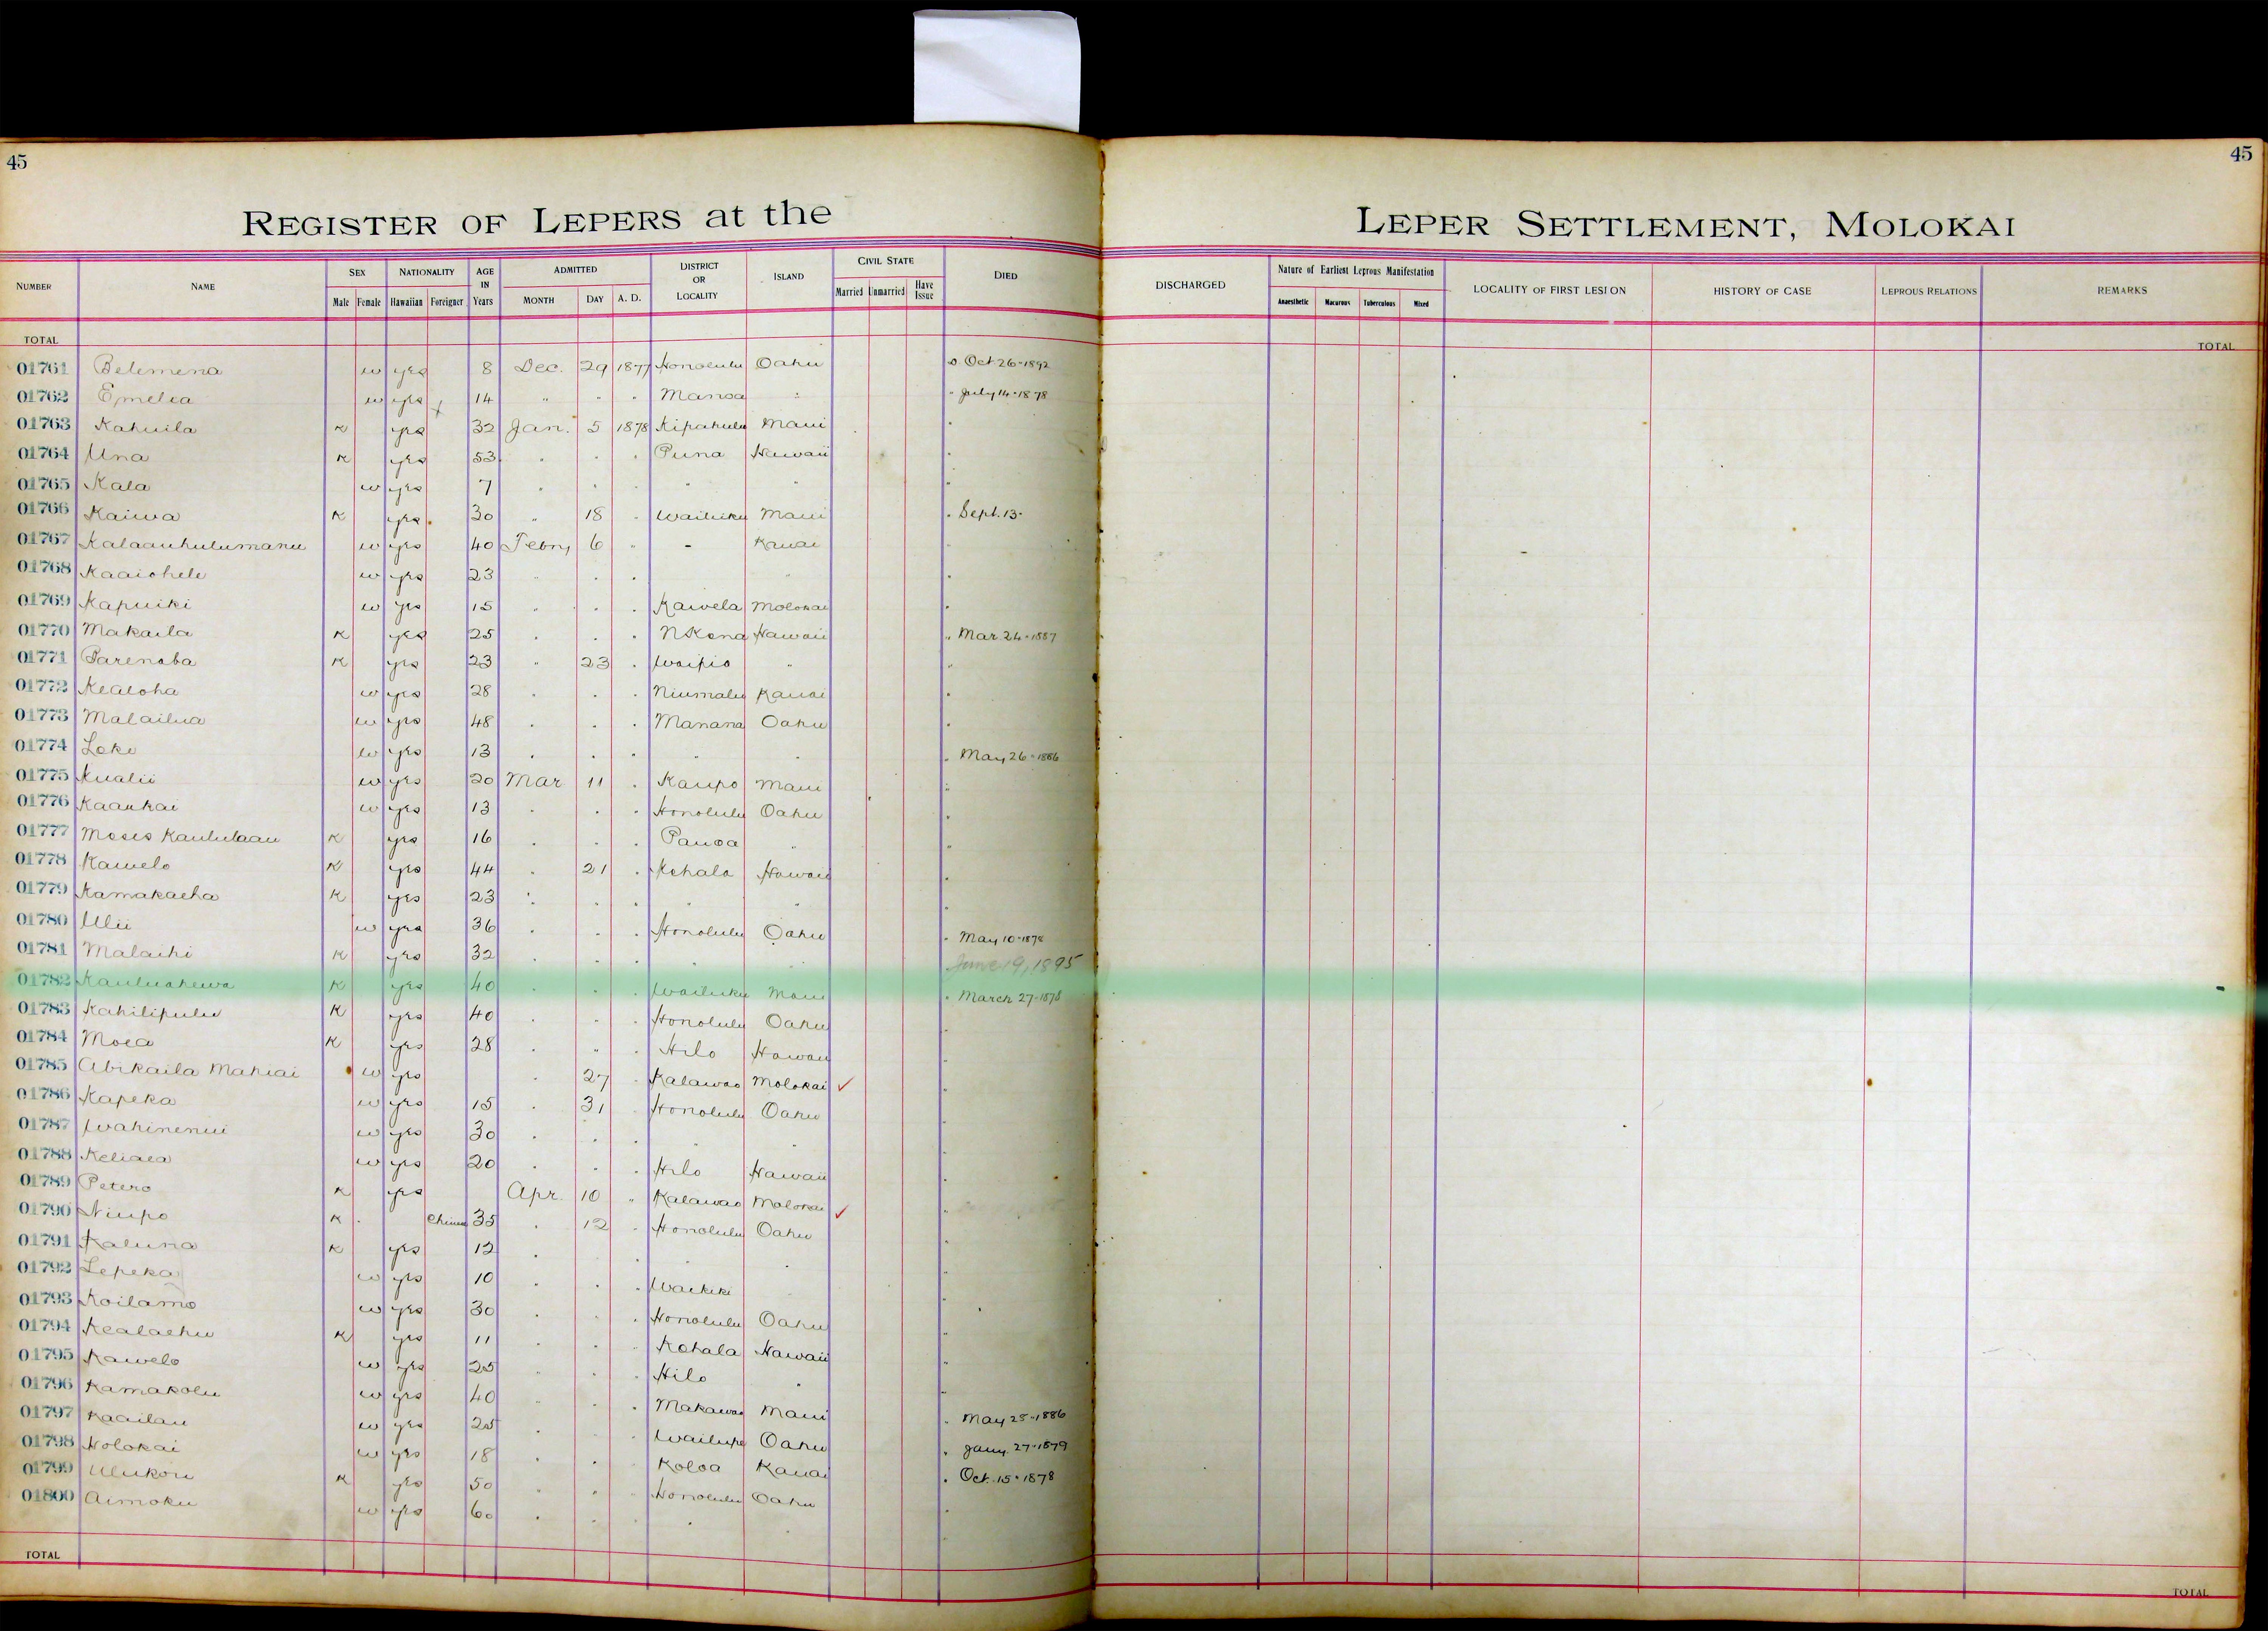 45
45
REGISTER OF LEPERS at the LEPER SETTLEMENT, MOLOKAI
NUMBER NAME SEX NATIONALITY AGE IN Years ADMITTED DISTRICT OR LOCALITY ISLAND CIVIL STATE DIED DISCHARGED Nature of Earliest Leprous Manifestation LOCALITY OF FIRST LESION HISTORY OF CASE LEPROUS RELATIONS REMARKS
Male Female Hawaiian Foreigner MONTH DAY A. D. Married Unmarried Have Issue Anaesthetic Macurous Tuberculous Mixed
TOTAL TOTAL
01761 Belemena w yes 8 Dec. 29 1877 Honolulu Oahu D. Oct 26-1892
01762 Emelia w yes 14 " " " Manoa " " July 14-1878
01763 Kahuila K yes 32 Jan. 5 1878 Kipahulu Maui
01764 Una K yes 53 " " " Puna Hawaii
01765 Kala w yes 7 " " " " "
01766 Kaiwa K yes 30 " 18 " Wailuku Maui " Sept. 13-
01767 Kalaauhulumanu w yes 40 Febry 6 " - Kauai
01768 Kaaiohele w yes 23 " " " "
01769 Kapuiki w yes 15 " " " Kawela Molokai
01770 Makaila K yes 25 " " " N Kona Hawaii " Mar. 24-1887
01771 Parenaba K yes 23 " 23 " Waipio "
01772 Kealoha w yes 28 " " " Niumalu Kauai
01773 Malailua w yes 48 " " " Manana Oahu
01774 Loke w yes 13 " " " " " " May 26-1886
01775 Kualii w yes 20 Mar 11 " Kaupo Maui
01776 Kaaukai w yes 13 " " " Honolulu Oahu
01777 Moses Kaululaau K yes 16 " " " Pauoa "
01778 Kawelo K yes 44 " 21 " Kohala Hawaii
01779 Kamakaeha K yes 23 " " " " "
01780 Ulii w yes 36 " " " Honolulu Oahu " May 10-1878
01781 Malaihi K yes 32 " " " " " June 19, 1895
01782 Kauluahewa K yes 40 " " " Wailuku Maui " March 27-1878
01783 Kahilipulu K yes 40 " " " Honolulu Oahu
01784 Moea K yes 28 " " " Hilo Hawaii
01785 Abikaila Mahiai w yes " 27 " Kalawao Molokai ✓
01786 Kapeka w yes 15 " 31 " Honolulu Oahu
01787 Wahinenui w yes 30 " " " " "
01788 Keliaea w yes 20 " " " Hilo Hawaii
01789 Petero K yes Apr. 10 " Kalawao Molokai ✓
01790 Niupo K Chinese 35 " 12 " Honolulu Oahu
01791 Kaluna K yes 12 " " " " "
01792 Lepeka w yes 10 " " " Waikiki "
01793 Koilamo w yes 30 " " " Honolulu Oahu
01794 Kealaehu K yes 11 " " " Kohala Hawaii
01795 Kawelo w yes 25 " " " Hilo "
01796 Kamakolu w yes 40 " " " Makawao Maui
01797 Kaailau w yes 25 " " " Wailupe Oahu " May 25-1886
01798 Holokai w yes 18 " " " Koloa Kauai " Jany. 27-1879
01799 Ulukou K yes 50 " " " Honolulu Oahu " Oct. 15-1878
01800 Aimoku w yes 60 " " " " "
TOTAL TOTAL